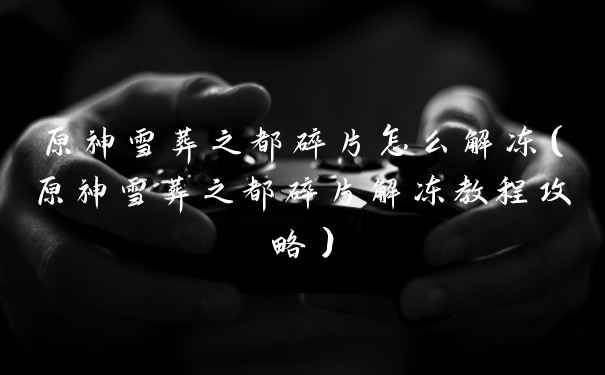 原神雪葬之都碎片怎么解冻(
原神雪葬之都碎片解冻教程攻
略)